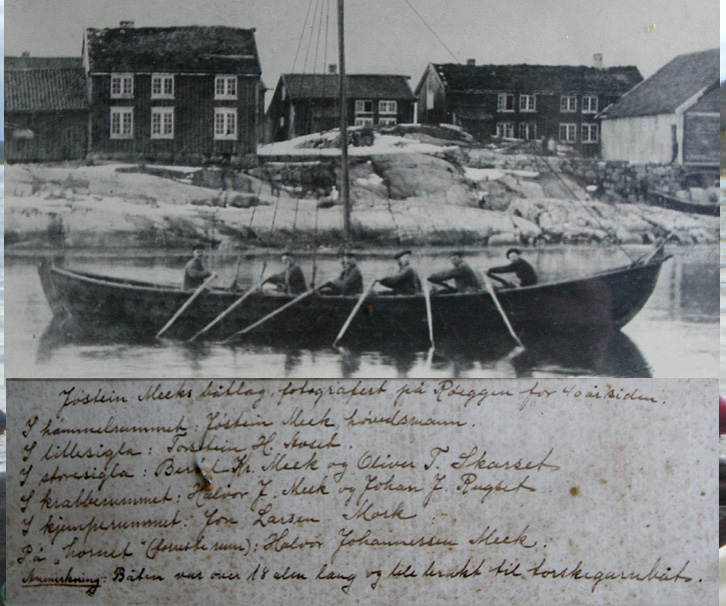 Jøstein Meeks båtlag, fotografert på Røeggen for 40 år siden.
I hammelrummet: Jøstein Meek, høvedsmann.
I lillesigla: Torstein H. Aaset.
I storesigla: Kr. Meek og Oliver T. Skarset
I krabberummet: Halvor J. Meek og Johan J. Rugset
I kjemperummet: Jon Larsen Mork
På "hornet" (forreste rum): Halvor Johannessen Meek.
Anmerkning: Båten var over 18 alen lang og ble brukt til torskegarnbåt.